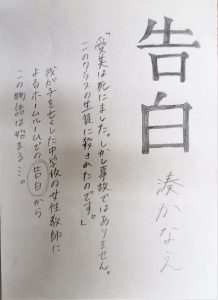 告白
湊かなえ
「愛美は死にました。しかし事故ではありません。
このクラスの生徒に殺されたのです。」
我が子を亡くした中学校の女性教師に
よるホームルームでの告白から
この物語は始まる…。